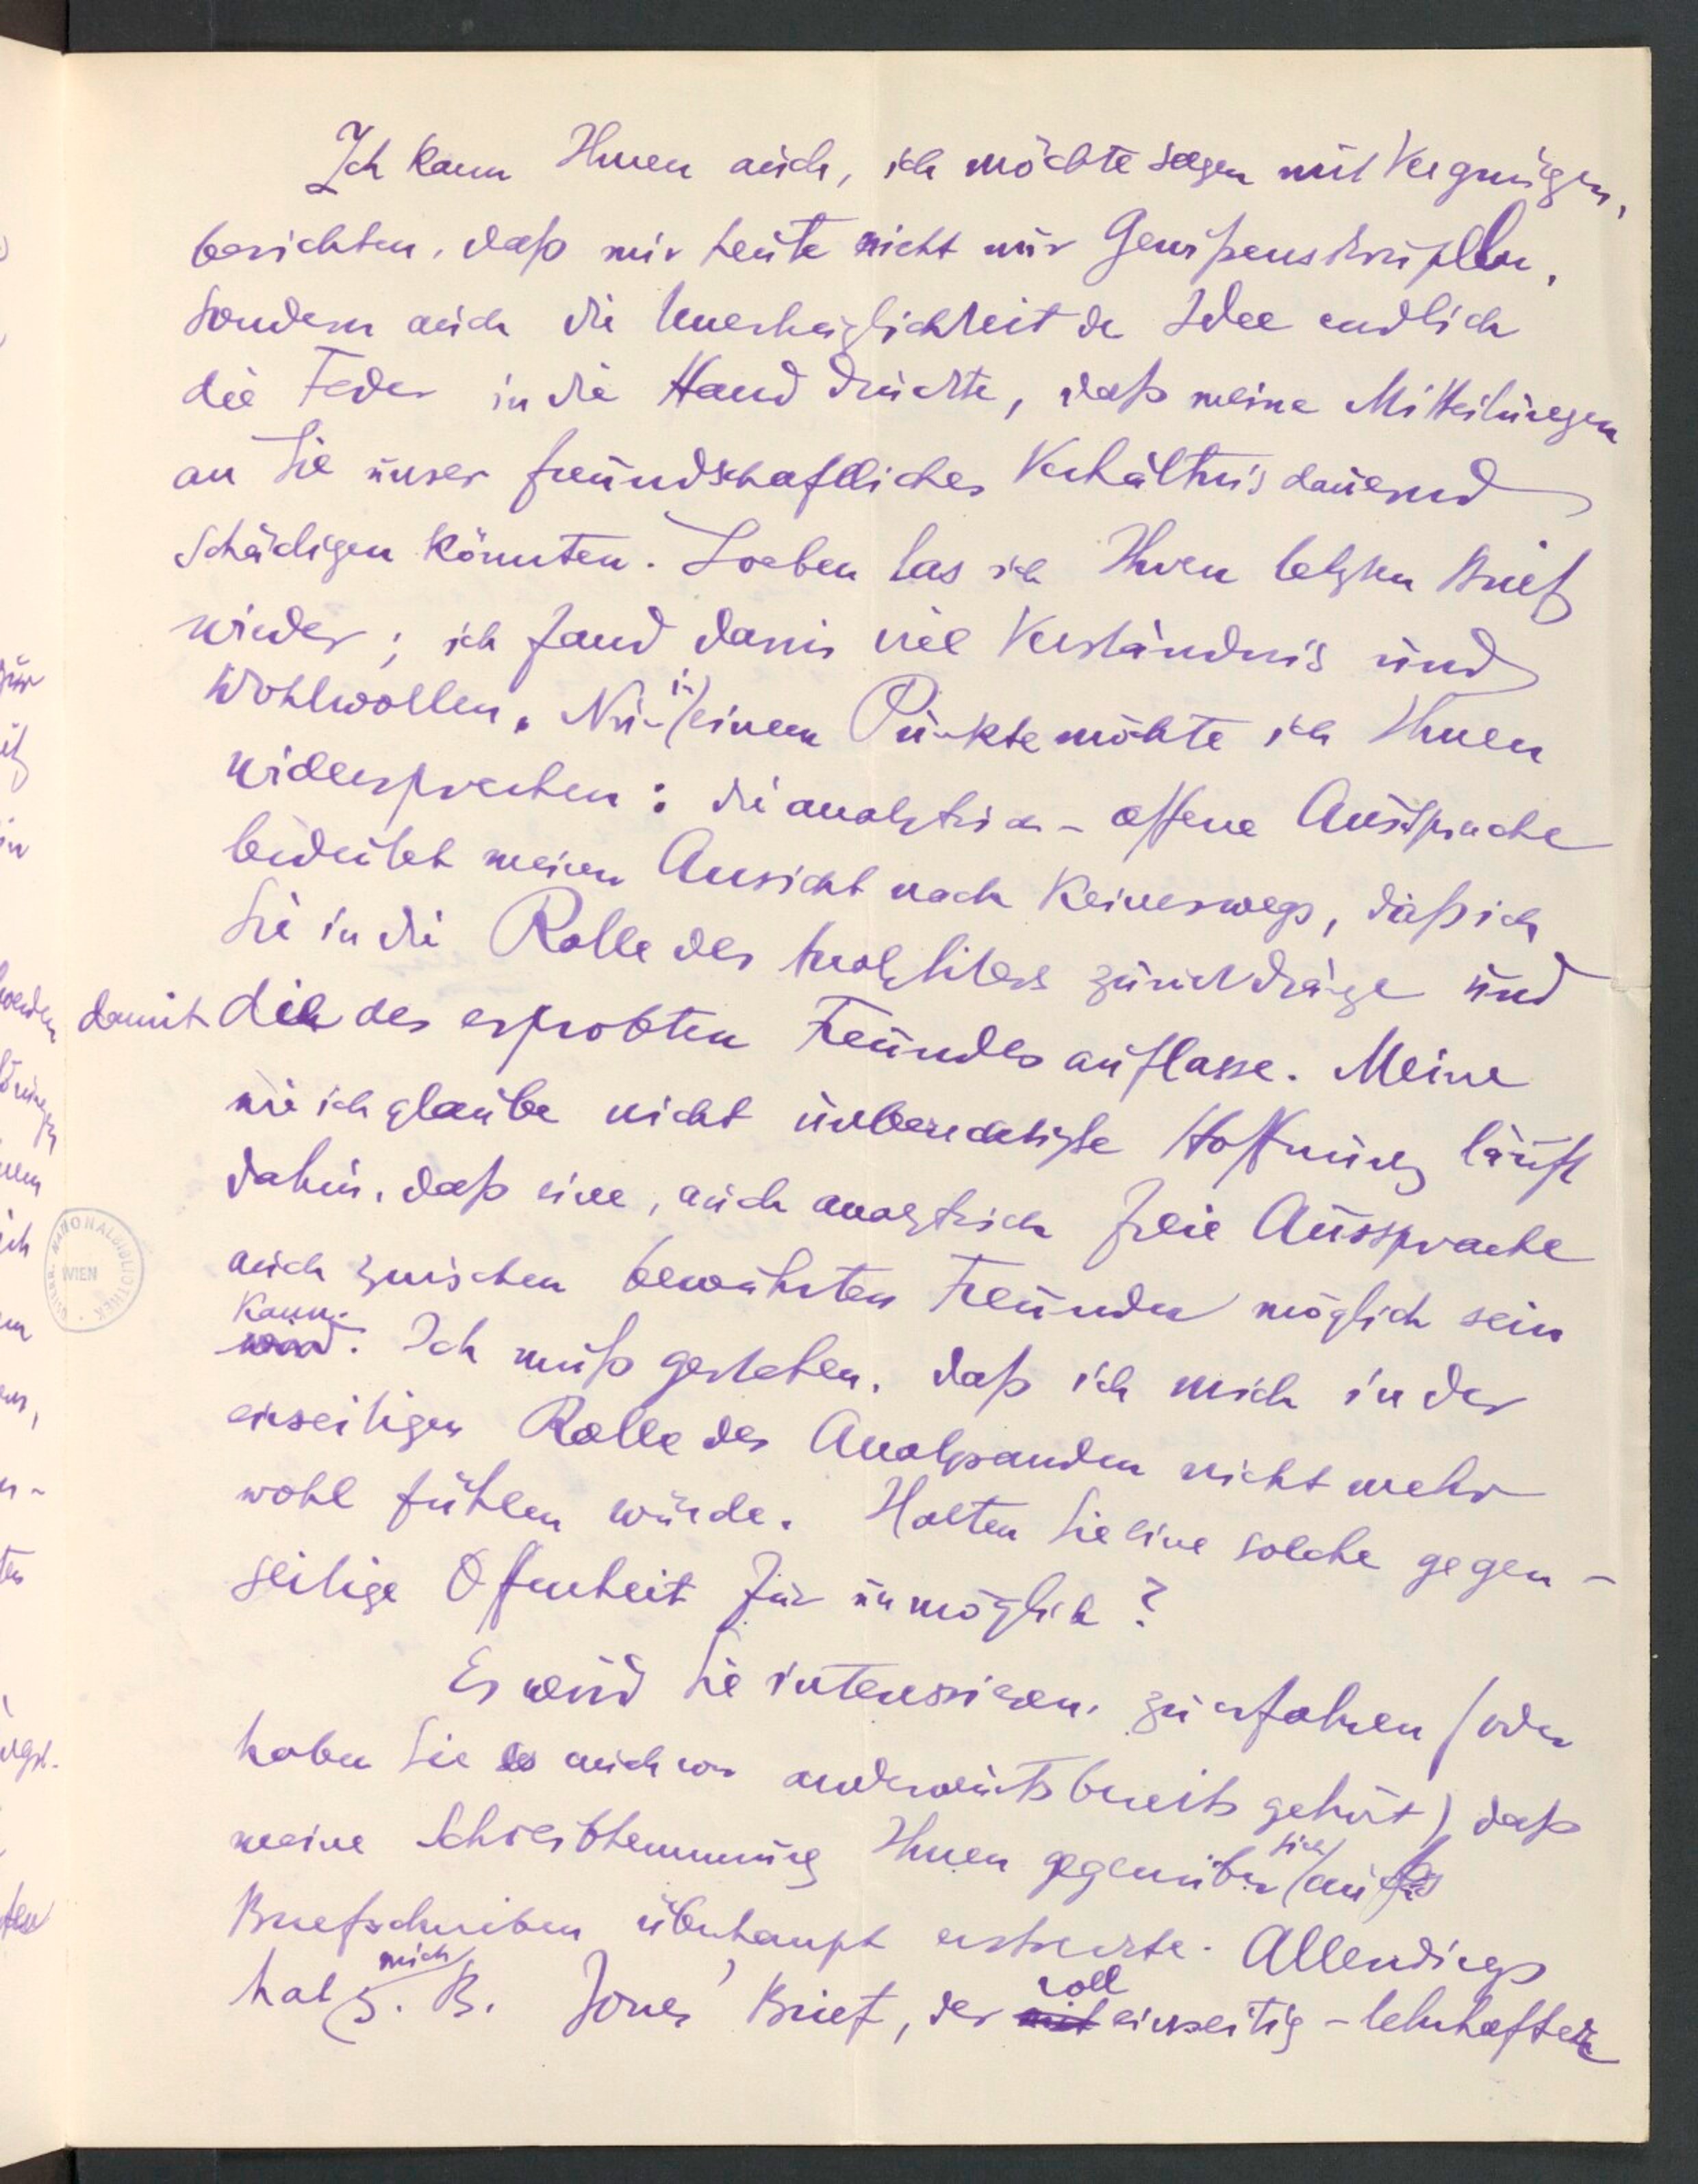 Ich kann Ihnen auch, ich möchte sagen mit Vergnügen,
berichten, daß mir heute nicht nur Gewißensskrupeln,
sondern auch die Unerträglichkeit der Idee endlich
die Feder in die Hand drückte, daß meine Mitteilungen
an Sie unser freundschaftliches Verhältnis dauernd
schädigen könnten. Soeben las ich Ihren letzten Brief
wieder; ich fand darin viel Verständnis und
Wohlwollen. Nur in einem Punkte möchte ich Ihnen
widersprechen: die analytisch-offene Aussprache
bedeutet meiner Ansicht nach keineswegs, daß ich
Sie in die Rolle des Analytikers zurückdränge und
damit die des erprobten Freundes auflasse. Meine
wie ich glaube nicht unberechtigte Hoffnung läuft
dahin, daß eine, auch analytisch freie Aussprache
auch zwischen bewährten Freunden möglich sein
kann.
wird. Ich muß gestehen, daß ich mich in der
einseitigen Rolle des Analysanden nicht mehr
wohl fühlen würde. Halten Sie eine solche gegen-
seitige Offenheit für unmöglich?
Es wird Sie interessieren, zu erfahren (oder
haben Sie es auch von anderwärts bereits gehört) daß
meine Schreibhemmung Ihnen gegenüber sich aufs
Briefschreiben überhaupt erstreckte. Allerdings
hat mich z. B. Jones' Brief, der mit voll einseitig-lehrhaften
ÖSTERR. NATIONALBIBLIOTHEK WIEN